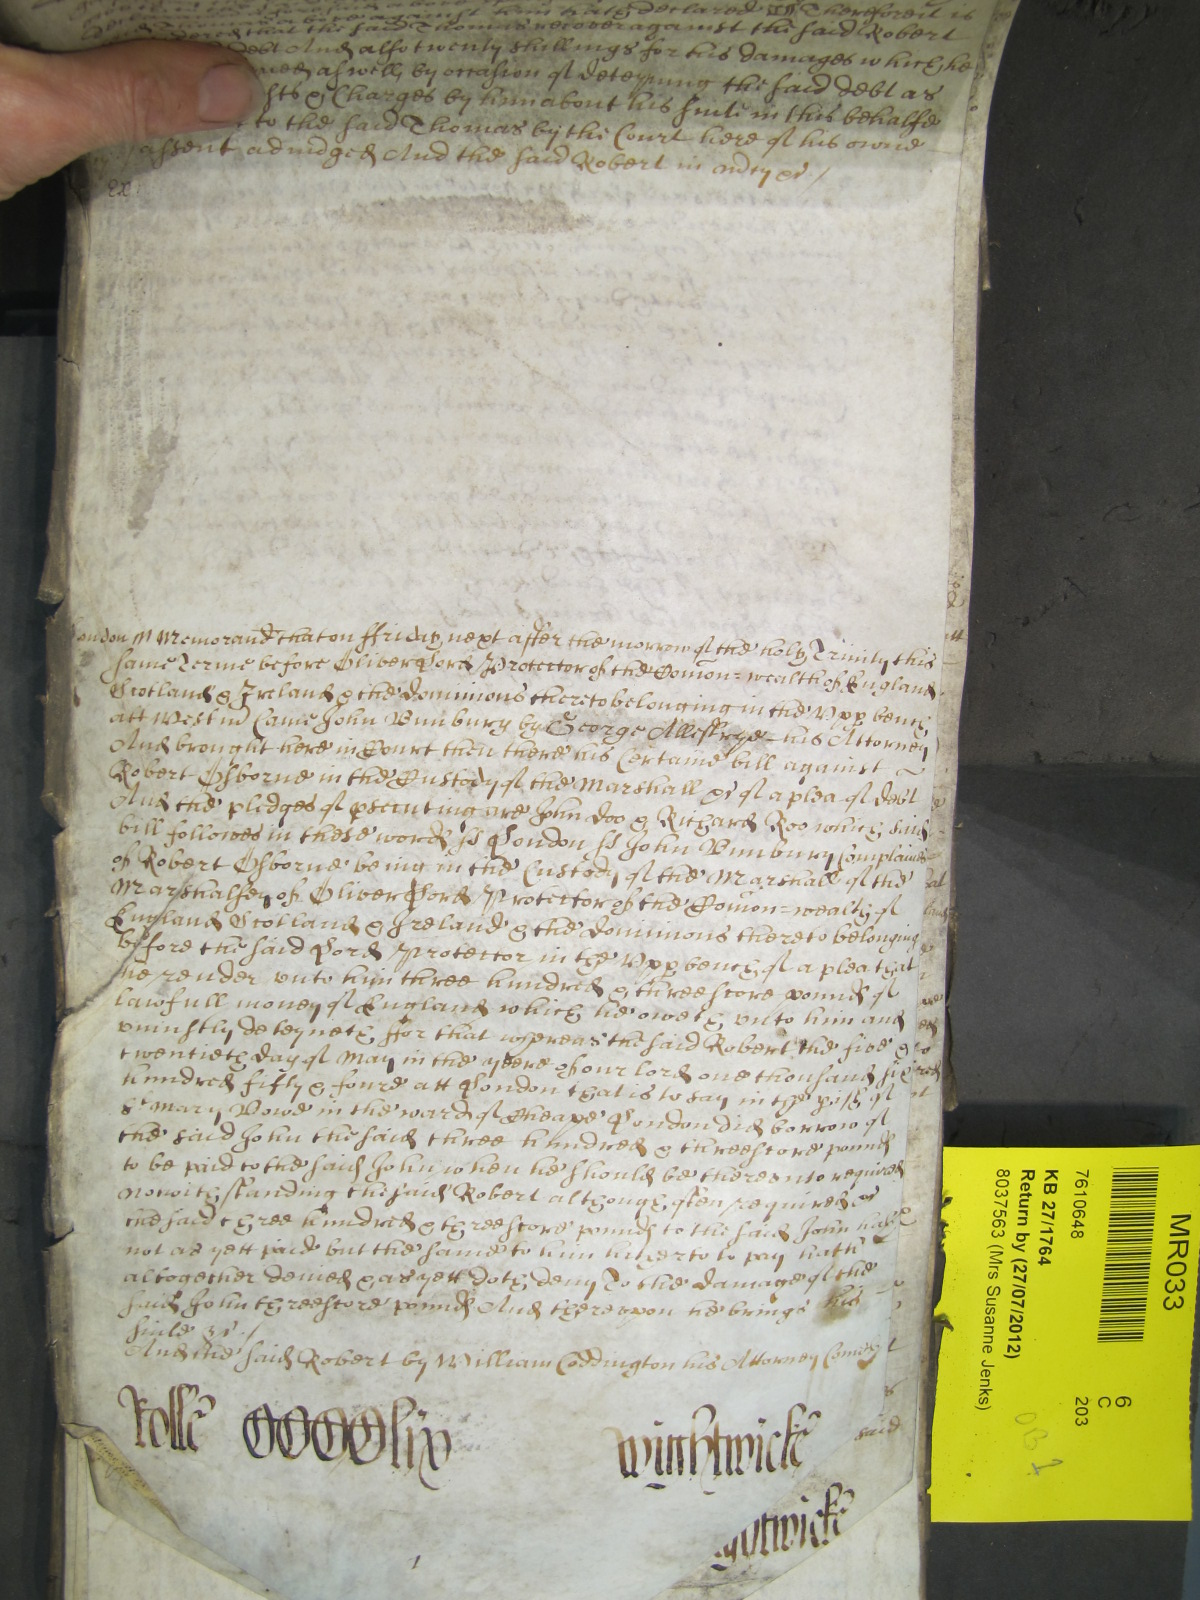 declared Therefore it is
that the said Thomas recover against the said Robert
debt And also twenty shillings for his damages which he
aswell by occasion of deteyning the said debt as
& Charges by him about his suite in this behalfe
to the said Thomas by the Court here of his owne
assent adiudged And the said Robert in mercy &c /
London ss Memorand that on ffriday next after the morrow of the holy Trinity this
same Terme before Oliver Lord Protector of the Comon=wealth of England
Scotland & Ireland & the dominions thereto belonging in the Vpp bench
att Westm Came John Bunbury by George Alleffrye his Attorney
And brought here in Court then there his Certaine bill against
Robert Osborne in the Custody of the Marshall &c of a plea of debt
And the pledges of psecuting are John Doo & Richard Roo which said
bill followes in these words ss London ss John Bunbury Complaines
of Robert Osborne being in the Custody of the Marshall of the
Marshalsey of Oliver Lord Protector of the Comon=wealth of
England Scotland & Ireland & the dominions thereto belonging
before the said Lord Protector in the Vpp bench of a plea that
he render vnto him three hundred & threescore pounds of
lawfull money of England which he oweth vnto him and
vniustly deteyneth ffor that whereas the said Robert the five &
twentieth day of May in the yeere of our lord one thousand six
hundred fifty & foure att London that is to say in the pish of
St Mary Bowe in the ward of Cheape London did borrow of
the said John the said three hundred & threescore pounds
to be paid to the said John when he should be thereunto required
Notwithstanding the said Robert although often required &c
the said three hundred & threescore pounds to the said John hath
not as yett paid but the same to him hitherto to pay hath
altogether denied & as yett doth deny To the damage of the
said John threescore pounds And thereupon he brings his
suite &c /
And the said Robert by William Coddington his Attorney Cometh
said
Rolle CCCClix Wightwicke
MR033
7610648
6
C
203
KB 27/1764
Return by (27/07/2012)
8037563 (Mrs Susanne Jenks)